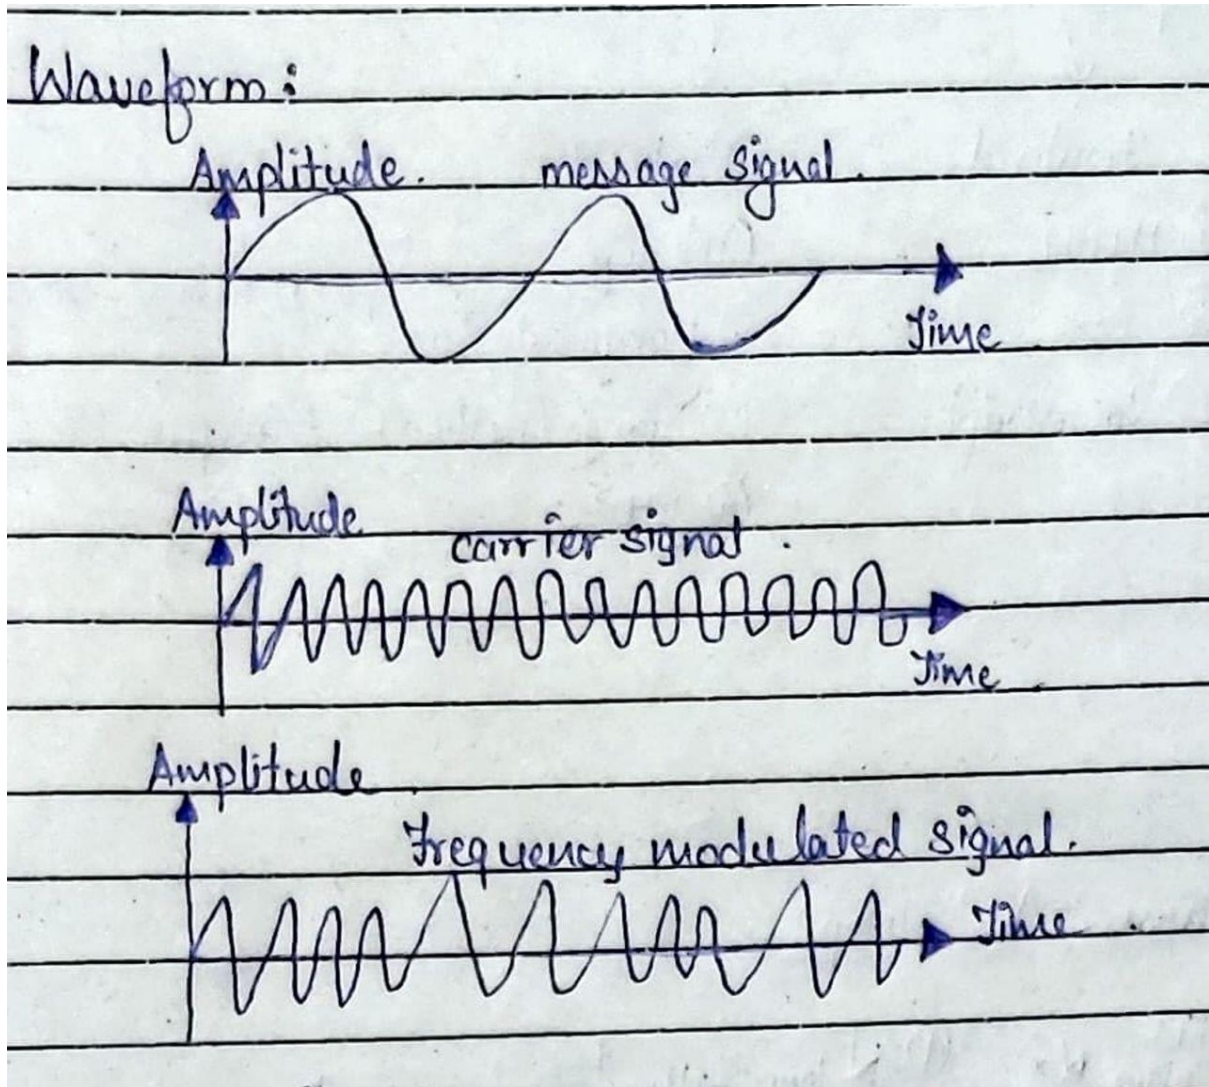 Waveform:
Amplitude. message signal.
Time
Amplitude
carrier signal.
Time
Amplitude
Frequency modulated signal.
Time.